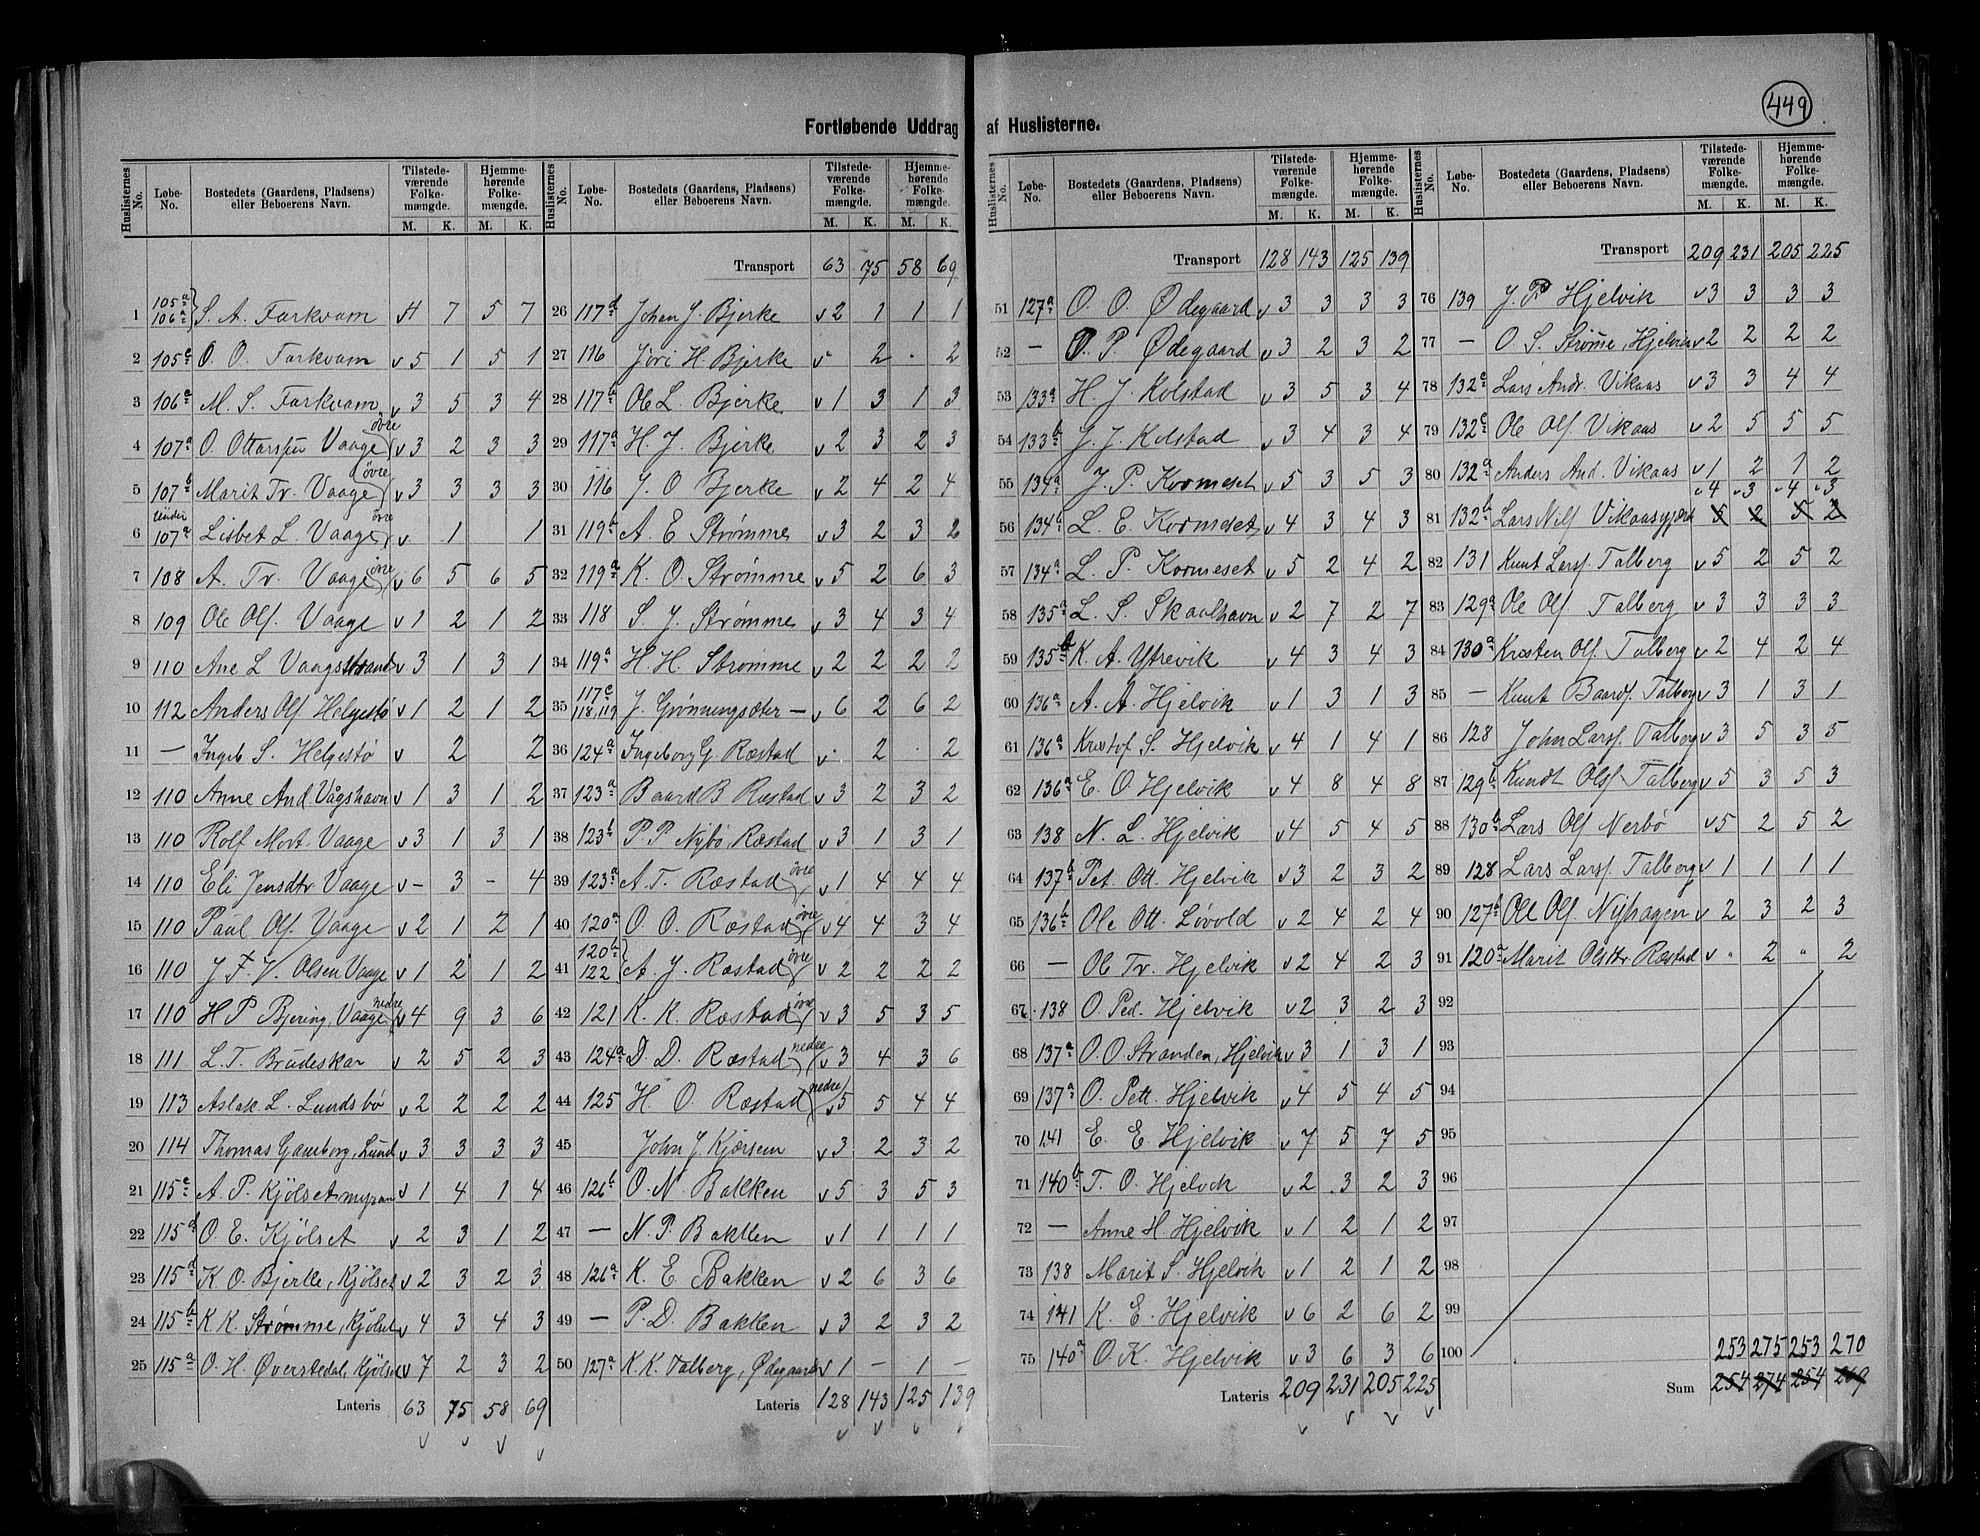 449
Fortløbende Uddrag af Huslisterne.
Huslisternes No. | Løbe-No. | Bostedets (Gaardens, Pladsens) eller Beboerens Navn. | Tilstedeværende Folkemængde. M. K. | Hjemmehørende Folkemængde. M. K.
1 105a 106a S. A. Farkvam 4 7 5 7
2 105c O. O. Farkvam v 5 1 5 1
3 106a M. S. Farkvam v 3 5 3 4
4 107a O. Ottarsen Vaage øvre v 3 2 3 3
5 107b Marit Tr. Vaage øvre v 3 3 3 3
6 under 107a Lisbet L. Vaage øvre v 1 1
7 108 A. Tr. Vaage øvre v 6 5 6 5
8 109 Ole Ols. Vaage v 1 2 1 2
9 110 Ane L Vaagstrand v 3 1 3 1
10 112 Anders Ols Helgestø v 1 2 1 2
11 — Ingeb S. Helgestø v 2 2
12 110 Anne And Vågshavn v 1 3 1 2
13 110 Rolf Mort. Vaage v 3 1 3 1
14 110 Eli Jensdtr Vaage v - 3 - 4
15 110 Paul Ols Vaage v 2 1 2 1
16 110 J F V. Olsen Vaage v 1 2 1 2
17 110 H P Bjering, Vaage nedre v 4 9 3 6
18 111 L. T. Brudeskar v 2 5 2 3
19 113 Aslak L. Lundsbø v 2 2 2 2
20 114 Thomas Gamborg, Lund v 3 3 3 3
21 115e A. P. Kjølsetsmyran v 1 4 1 4
22 115a O. E. Kjølset v 2 3 1 2
23 115d K O. Bjerke, Kjølset v 2 3 2 3
24 115b K K. Strømme, Kjølset v 4 3 4 3
25 115a O. H. Øverstedal, Kjølset v 7 2 3 2
Lateris 63 75 58 69
Transport 63 75 58 69
26 117d Johan J. Bjerke v 2 1 1 1
27 116 Jøri H Bjerke v - 2 . 2
28 117b Ole L. Bjerke v 1 3 1 3
29 117a H. J. Bjerke v 2 3 2 3
30 116 J. O Bjerke v 2 4 2 4
31 119b A. E Strømme v 3 2 3 2
32 119a K. O. Strømme v 5 2 6 3
33 118 S. J. Strømme v 3 4 3 4
34 119a H. H. Strømme v 2 2 2 2
35 117c 118,119 J. Grønningsæter — v 6 2 6 2
36 124a Ingeborg G. Ræstad v . 2 . 2
37 123a Baard B Ræstad v 3 2 3 2
38 123b P P Nybø, Ræstad v 3 1 3 1
39 123a A. T. Ræstad øvre v 1 4 4 4
40 120a O. O. Ræstad øvre v 4 4 3 4
41 120b 122 A. J. Ræstad øvre v 2 2 2 2
42 121 K. K. Ræstad øvre v 3 5 3 5
43 124a D. D. Ræstad nedre v 3 4 3 6
44 125 H. O. Ræstad nedre v 5 5 4 4
45 John J. Kjørsem v 3 2 3 2
46 126b O. N. Bakken v 5 3 5 3
47 — N. P. Bakken v 1 1 1 1
48 126a K. E. Bakken v 2 6 3 6
49 — P. D. Bakken v 3 2 3 2
50 127a K. K. Talberg, Ødegaard v 1 — 1 —
Lateris 128 143 125 139
Transport 128 143 125 139
51 127a O. O. Ødegaard v 3 3 3 3
52 — O. P. Ødegaard v 3 2 3 2
53 133a H. J. Kolstad v 3 5 3 4
54 133b J. J. Kolstad v 3 4 3 4
55 134a J. P. Kormeset v 5 3 5 3
56 134b L. E. Kormeset v 4 3 4 3
57 134a L. P. Kormeset v 5 2 4 2
58 135a L. S. Skaalhavn v 2 7 2 7
59 135b K. A. Ytrevik v 4 3 4 3
60 136a A. A. Hjelvik v 1 3 1 3
61 136a Kristof S. Hjelvik v 4 1 4 1
62 136a E. O. Hjelvik v 4 8 4 8
63 138 N. L. Hjelvik v 4 5 4 5
64 137b Pet. Ott. Hjelvik v 3 2 3 2
65 136b Ole Ott. Løvold v 2 4 2 4
66 — Ole Tr. Hjelvik v 2 4 2 3
67 138 O. Ped. Hjelvik v 2 3 2 3
68 137a O. O. Stranden, Hjelvik v 3 1 3 1
69 137a O. Pett. Hjelvik v 4 5 4 5
70 141 E. E. Hjelvik v 7 5 7 5
71 140b T. O. Hjelvik v 2 3 2 3
72 — Anne H. Hjelvik v 1 2 1 2
73 138 Marit S. Hjelvik v 1 2 1 2
74 141 K. E. Hjelvik v 6 2 6 2
75 140a O. K. Hjelvik v 3 6 3 6
Lateris 209 231 205 225
Transport 209 231 205 225
76 139 J. P. Hjelvik v 3 3 3 3
77 — O. S. Strøme, Hjelvik v 2 2 2 2
78 132e Lars Andr. Vikaas v 3 3 4 4
79 132c Ole Ols Vikaas v 2 5 5 5
80 132a Anders And. Vikaas v 1 2 1 2
v4 v3 v4 v3
81 132b Lars Nils Vikaas 5 2 5 2
82 131 Knut Lars. Talberg v 5 2 5 2
83 129a Ole Ols Talberg v 3 3 3 3
84 130a Kristen Ols. Talberg v 2 4 2 4
85 — Knut Baards. Talberg v 3 1 3 1
86 128 John Lars. Talberg v 3 5 3 5
87 129b Kundt Ols Talberg v 5 3 5 3
88 130b Lars Ols Nerbø v 5 2 5 2
89 128 Lars Lars. Talberg v 1 1 1 1
90 127b Ole Ols. Nyhagen v 2 3 2 3
91 120a Marit Olsdtr Ræstad v " 2 " 2
92
93
94
95
96
97
98
99
100
253 275 253 270
Sum 254 274 254 269